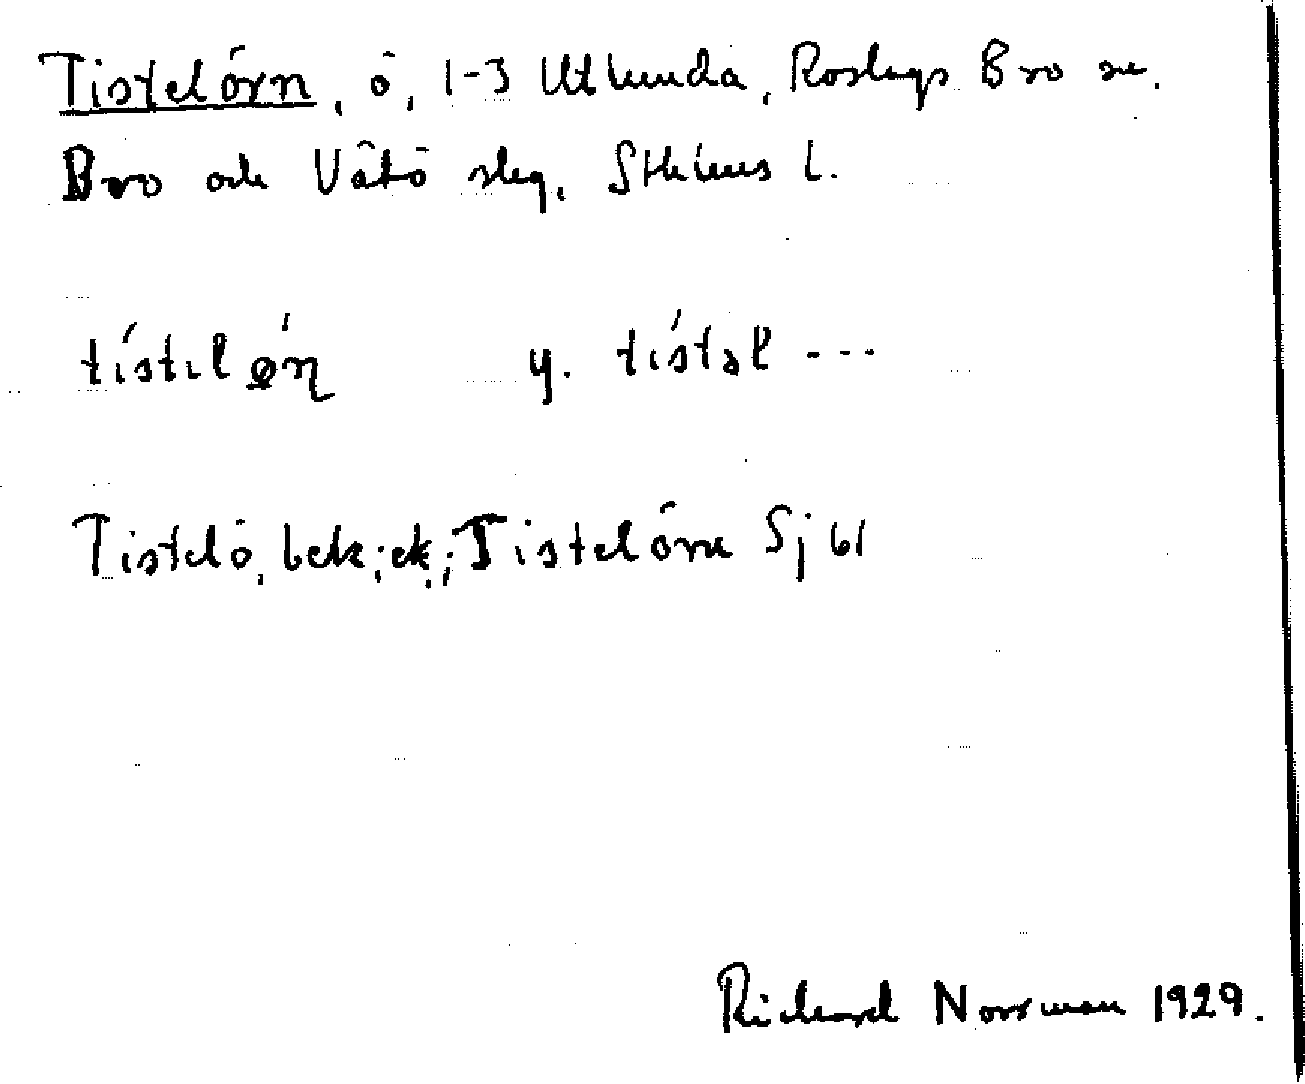 Tistelörn, ö, 1-3 Utlunda, Roslags Bro sn.
Bro och Vätö slg. Sthlms l.
tístıl ǿɳ y. tístəł ---
Tistelö, bek; ek; Tistelörn Sj 61
Richard Norrman 1929.